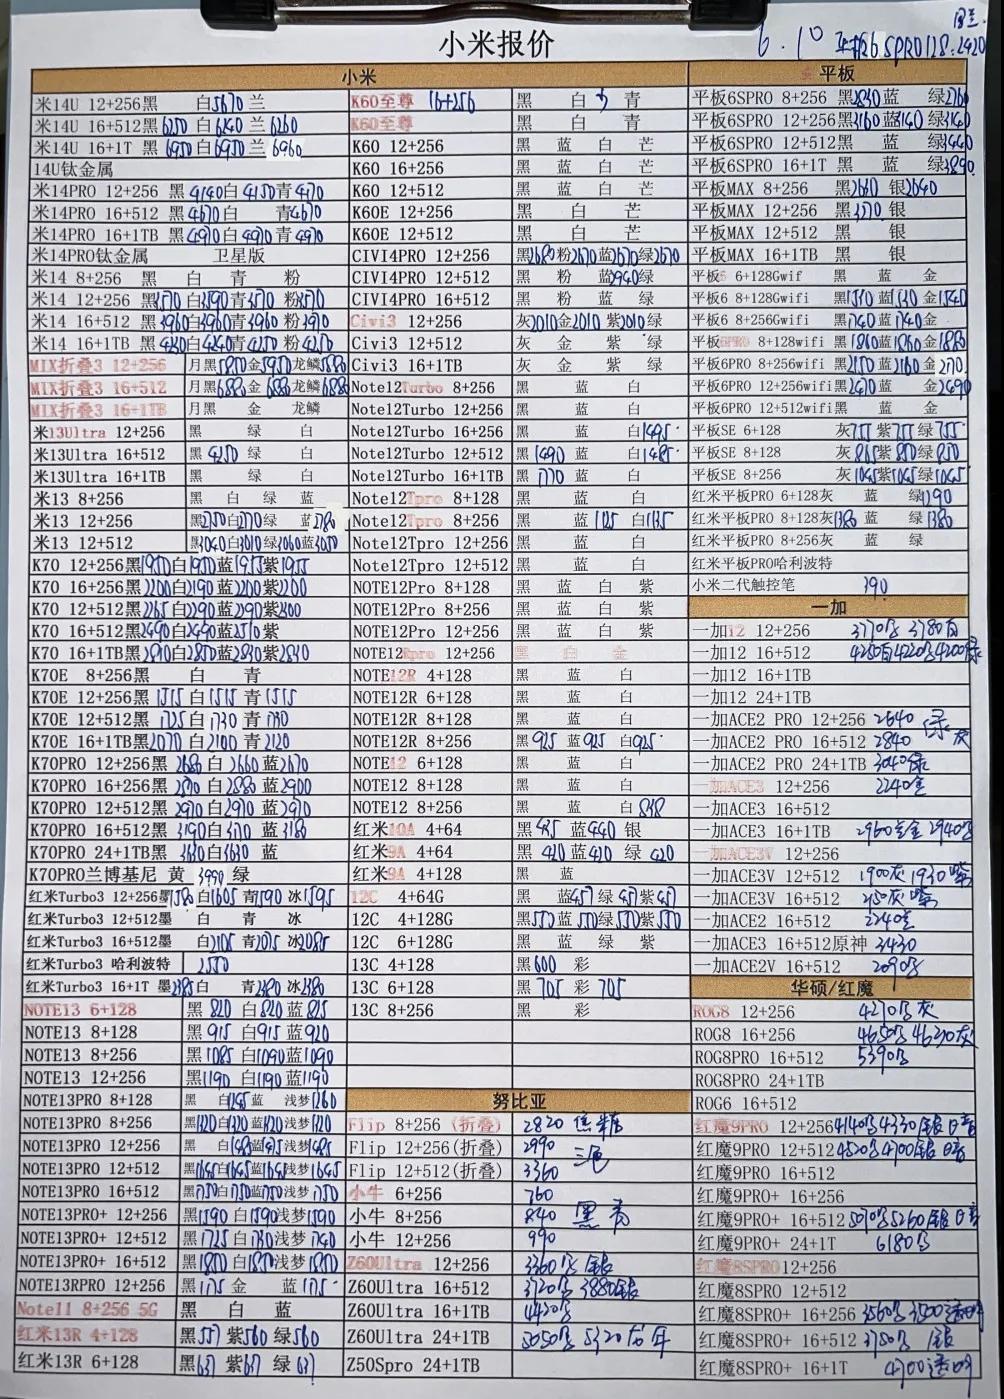 小米报价
6.10 平板6SPRO128.2920
小米
米14U 12+256黑 白5670 兰
米14U 16+512黑 6250 白 6240 兰 6260
米14U 16+1T 黑 6950 白 6950 兰 6960
14U钛金属
米14PRO 12+256 黑 4140 白 4150 青 4170
米14PRO 16+512 黑 4670 白 青 4670
米14PRO 16+1TB 黑 4970 白 4970 青 4970
米14PRO钛金属 卫星版
米14 8+256 黑 白 青 粉
米14 12+256 黑3570 白3590 青3570 粉3570
米14 16+512 黑 3960 白3960 青 3960 粉 3970
米14 16+1TB 黑 4220 白4240 青4250 粉 4250
MIX折叠3 12+256 月黑 5870 金 5950 龙鳞 5880
MIX折叠3 16+512 月黑 6880 金 6880 龙鳞 6880
MIX折叠3 16+1TB 月黑 金 龙鳞
米13Ultra 12+256 黑 绿 白
米13Ultra 16+512 黑 4250 绿 白
米13Ultra 16+1TB 黑 绿 白
米13 8+256 黑 白 绿 蓝
米13 12+256 黑2750 白2770 绿 蓝 2780
米13 12+512 黑3040 白3010 绿3060 蓝3050
K70 12+256黑1950 白1950 蓝1955 紫1955
K70 16+256黑2200 白2190 蓝2200 紫2200
K70 12+512黑2265 白2290 蓝2290 紫2300
K70 16+512黑2490 白2490 蓝2510 紫
K70 16+1TB黑2810 白2850 蓝2830 紫2830
K70E 8+256黑 白 青
K70E 12+256黑 1515 白 1515 青 1515
K70E 12+512黑 1725 白 1730 青 1730
K70E 16+1TB黑2070 白 2100 青 2120
K70PRO 12+256黑 2680 白 2660 蓝2670
K70PRO 16+256黑 2870 白 2880 蓝2900
K70PRO 12+512黑 2970 白 2970 蓝 2970
K70PRO 16+512黑 3190 白 3170 蓝 3180
K70PRO 24+1TB黑 3630 白3630 蓝
K70PRO兰博基尼 黄 3990 绿
红米Turbo3 12+256墨1580 白1605 青1590 冰1595
红米Turbo3 12+512墨 白 青 冰
红米Turbo3 16+512墨 白2105 青2075 冰2085
红米Turbo3 哈利波特 2550
红米Turbo3 16+1T 墨2385 白 青2380 冰2380
NOTE13 6+128 黑 820 白 820 蓝 825
NOTE13 8+128 黑 915 白915 蓝 920
NOTE13 8+256 黑1085 白1090 蓝1090
NOTE13 12+256 黑1190 白1190 蓝1190
NOTE13PRO 8+128 黑 白1245 蓝 浅梦1260
NOTE13PRO 8+256 黑1320 白1320 蓝1320 浅梦1320
NOTE13PRO 12+256 黑 白1485 蓝1475 浅梦1485
NOTE13PRO 12+512 黑1645 白1645 蓝1645 浅梦1645
NOTE13PRO 16+512 黑1750 白1750 蓝1750 浅梦1750
NOTE13PRO+ 12+256 黑1590 白1590 浅梦1590
NOTE13PRO+ 12+512 黑1725 白1730 浅梦1740
NOTE13PRO+ 16+512 黑1870 白1870 浅梦1870
NOTE13RPRO 12+256 黑1175 金 蓝 1175
Note11 8+256 5G 黑 白 蓝
红米13R 4+128 黑 557 紫560 绿560
红米13R 6+128 黑637 紫637 绿 637
K60至尊 16+256 黑 白 青
K60至尊 黑 白 青
K60 12+256 黑 蓝 白 芒
K60 16+256 黑 蓝 白 芒
K60 12+512 黑 蓝 白 芒
K60E 12+256 黑 白 芒
K60E 12+512 黑 白 芒
CIVI4PRO 12+256 黑2680 粉2670 蓝2670 绿2670
CIVI4PRO 12+512 黑 粉 蓝2940 绿
CIVI4PRO 16+512 黑 粉 蓝 绿
Civi3 12+256 灰2010 金2010 紫2010 绿
Civi3 12+512 灰 金 紫 绿
Civi3 16+1TB 灰 金 紫 绿
Note12Turbo 8+256 黑 蓝 白
Note12Turbo 12+256 黑 蓝 白
Note12Turbo 16+256 黑 蓝 白1445
Note12Turbo 12+512 黑 1490 蓝 白1485
Note12Turbo 16+1TB 黑 1770 蓝 白
Note12Tpro 8+128 黑 蓝 白
Note12Tpro 8+256 黑 蓝 1125 白1135
Note12Tpro 12+256 黑 蓝 白
Note12Tpro 12+512 黑 蓝 白
NOTE12Pro 8+128 黑 蓝 白 紫
NOTE12Pro 8+256 黑 蓝 白 紫
NOTE12Pro 12+256 黑 蓝 白 紫
NOTE12Rpro 12+256 黑 白 金
NOTE12R 4+128 黑 蓝 白
NOTE12R 6+128 黑 蓝 白
NOTE12R 8+128 黑 蓝 白
NOTE12R 8+256 黑 925 蓝 925 白925
NOTE12 6+128 黑 蓝 白
NOTE12 8+128 黑 蓝 白
NOTE12 8+256 黑 蓝 白 838
红米10A 4+64 黑 435 蓝440 银
红米9A 4+64 黑 420 蓝420 绿 420
红米9A 4+128 黑 蓝
12C 4+64G 黑 蓝457 绿 457 紫457
12C 4+128G 黑550 蓝 550 绿550 紫550
12C 6+128G 黑 蓝 绿 紫
13C 4+128 黑600 彩
13C 6+128 黑 705 彩 705
13C 8+256 黑 彩
努比亚
Flip 8+256 (折叠) 2820 焦糖
Flip 12+256(折叠) 2990 三色
Flip 12+512(折叠) 3360
小牛 6+256 760
小牛 8+256 840 黑 青
小牛 12+256 990
Z60Ultra 12+256 3360 银
Z60Ultra 16+512 3720 3880银
Z60Ultra 16+1TB 4420
Z60Ultra 24+1TB 5050 5320 龙年
Z50Spro 24+1TB
平板
平板6SPRO 8+256 黑2830 蓝 绿2760
平板6SPRO 12+256黑3160 蓝3140 绿3140
平板6SPRO 12+512黑 蓝 绿3440
平板6SPRO 16+1T 黑 蓝 绿3890
平板MAX 8+256 黑2660 银2640
平板MAX 12+256 黑 3570 银
平板MAX 12+512 黑 银
平板MAX 16+1TB 黑 银
平板6 6+128Gwif 黑 蓝 金
平板6 8+128Gwifi 黑1510 蓝1530 金1540
平板6 8+256Gwifi 黑1740 蓝1740 金
平板6PRO 8+128wifi 黑 1860 蓝1860 金1880
平板6PRO 8+256wifi 黑2150 蓝2160 金2170
平板6PRO 12+256wifi黑2470 蓝 金2490
平板6PRO 12+512wifi黑 蓝 金
平板SE 6+128 灰755 紫755 绿 755
平板SE 8+128 灰 865 紫 850 绿 850
平板SE 8+256 灰 1045 紫1045 绿1045
红米平板PRO 6+128灰 蓝 绿1290
红米平板PRO 8+128灰1380 蓝 绿 1380
红米平板PRO 8+256灰 蓝 绿
红米平板PRO哈利波特
小米二代触控笔 390
一加
一加12 12+256 3770 3780白
一加12 16+512 4250白4220 4200绿
一加12 16+1TB
一加12 24+1TB
一加ACE2 PRO 12+256 2640 绿
一加ACE2 PRO 16+512 2840 灰
一加ACE2 PRO 24+1TB 3040绿
一加ACE3 12+256 2240金
一加ACE3 16+512
一加ACE3 16+1TB 2960 金 2940
一加ACE3V 12+256
一加ACE3V 12+512 1900灰 1930紫
一加ACE3V 16+512 灰 紫
一加ACE2 16+512 2240
一加ACE3 16+512原神 3430
一加ACE2V 16+512 2090
华硕/红魔
ROG8 12+256 4270 灰
ROG8 16+256 4650 4630灰
ROG8PRO 16+512 5390
ROG8PRO 24+1TB
ROG6 16+512
红魔9PRO 12+256 4140 4330 银
红魔9PRO 12+512 4520 4700 银
红魔9PRO 16+512
红魔9PRO+ 16+256
红魔9PRO+ 16+512 5070 5260 银
红魔9PRO+ 24+1T 6180
红魔8SPRO 12+256
红魔8SPRO 12+512
红魔8SPRO+ 16+256 3560 3500透明
红魔8SPRO+ 16+512 3750 银
红魔8SPRO+ 16+1T 4700透明